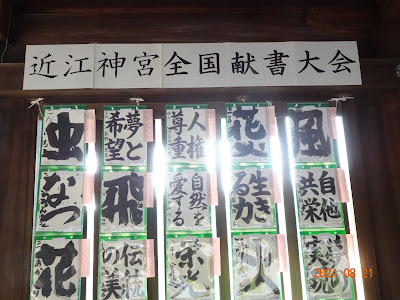 近江神宮全国献書大会
虫
夢と希望
人権尊重
花火
風
なつ
飛
自然を愛する
生きる力
自他共栄
花
伝統の美
栄光
火
2024 08 21